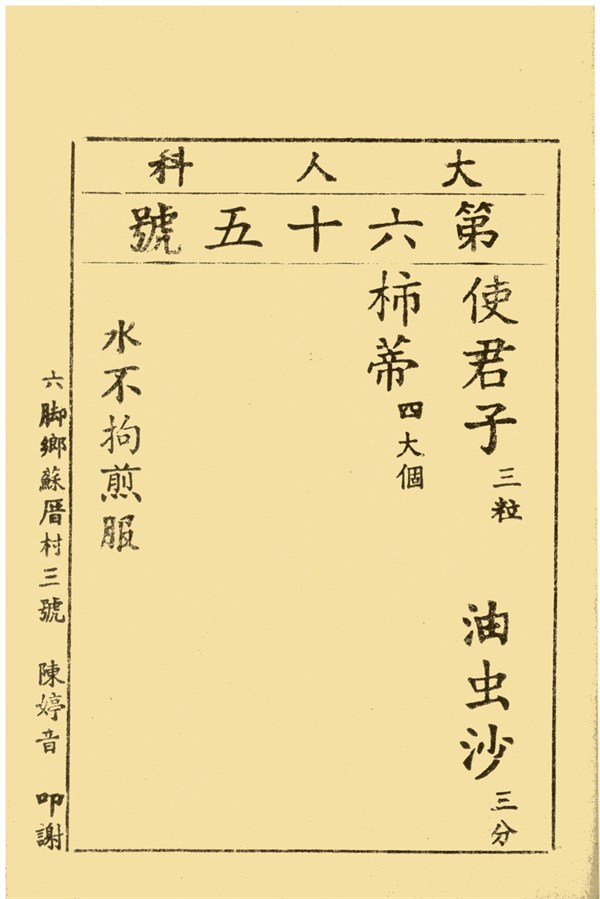 大人科
第六十五號
使君子三粒 油虫沙三分
柿蒂四大個
水不拘煎服
六脚鄉蘇厝村三號 陳婷音 叩謝